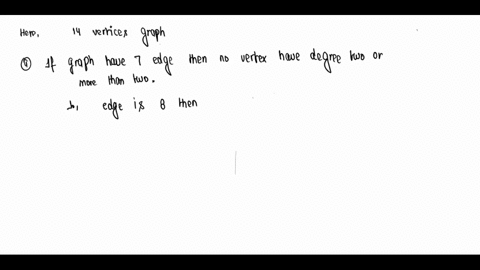 Here, 14 vertices graph
ⓐ If graph have 7 edge then no vertex have degree two or
more than two.
b, edge is 8 then